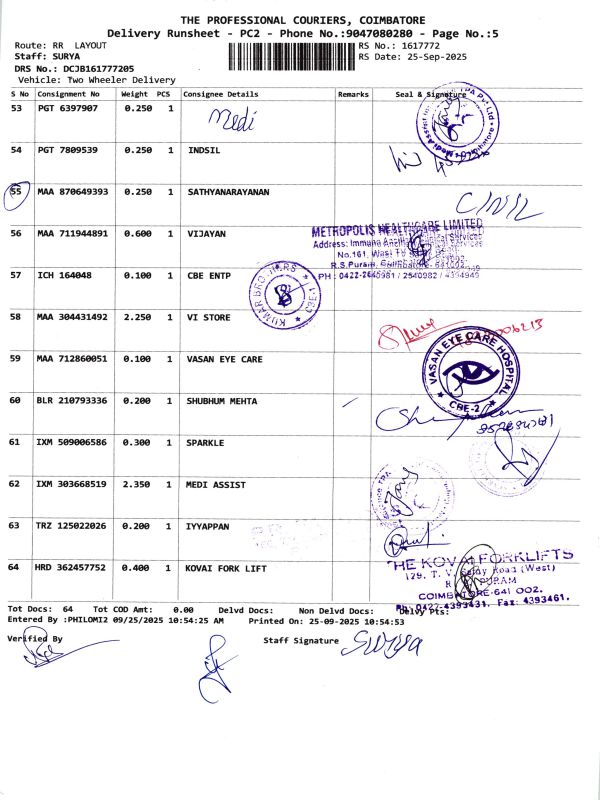 THE PROFESSIONAL COURIERS, COIMBATORE
Delivery Runsheet - PC2 - Phone No.:9047080280 - Page No.:5
Route: RR LAYOUT
RS No.: 1617772
Staff: SURYA
RS Date: 25-Sep-2025
DRS No.: DCJB161777205
Vehicle: Two Wheeler Delivery
S No Consignment No Weight PCS Consignee Details Remarks Seal & Signature
53 PGT 6397907 0.250 1 Medi
54 PGT 7809539 0.250 1 INDSIL
55 MAA 870649393 0.250 1 SATHYANARAYANAN
56 MAA 711944891 0.600 1 VIJAYAN
METROPOLIS HEALTHCARE LIMITED
R.S.Puram,
57 ICH 164048 0.100 1 CBE ENTP
KUMAR BROTHERS
58 MAA 304431492 2.250 1 VI STORE
59 MAA 712860051 0.100 1 VASAN EYE CARE
VASAN EYE CARE HOSPITAL
CBE-2
60 BLR 210793336 0.200 1 SHUBHUM MEHTA
61 IXM 509006586 0.300 1 SPARKLE
62 IXM 303668519 2.350 1 MEDI ASSIST
63 TRZ 125022026 0.200 1 IYYAPPAN
64 HRD 362457752 0.400 1 KOVAI FORK LIFT
THE KOVAI FORKLIFTS
129, T. V. Road (West)
COIMBATORE-641 002.
Ph: 0422-4393431. Fax: 4393461.
Tot Docs: 64 Tot COD Amt: 0.00 Delvd Docs: Non Delvd Docs: Delvy Pts:
Entered By :PHILOMI2 09/25/2025 10:54:25 AM Printed On: 25-09-2025 10:54:53
Verified By Staff Signature Surya